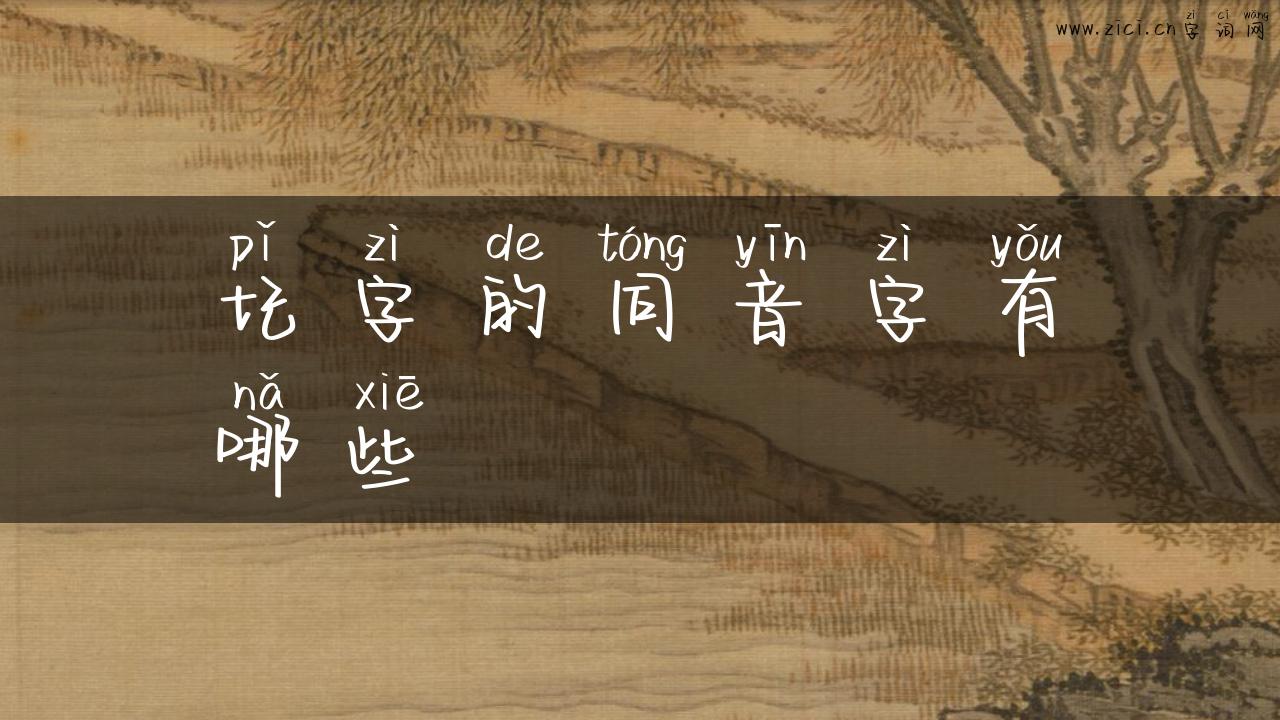 zì cí wǎng
www.zici.cn字词网
pǐ zì de tóng yīn zì yǒu
圪字的同音字有
nǎ xiē
哪些